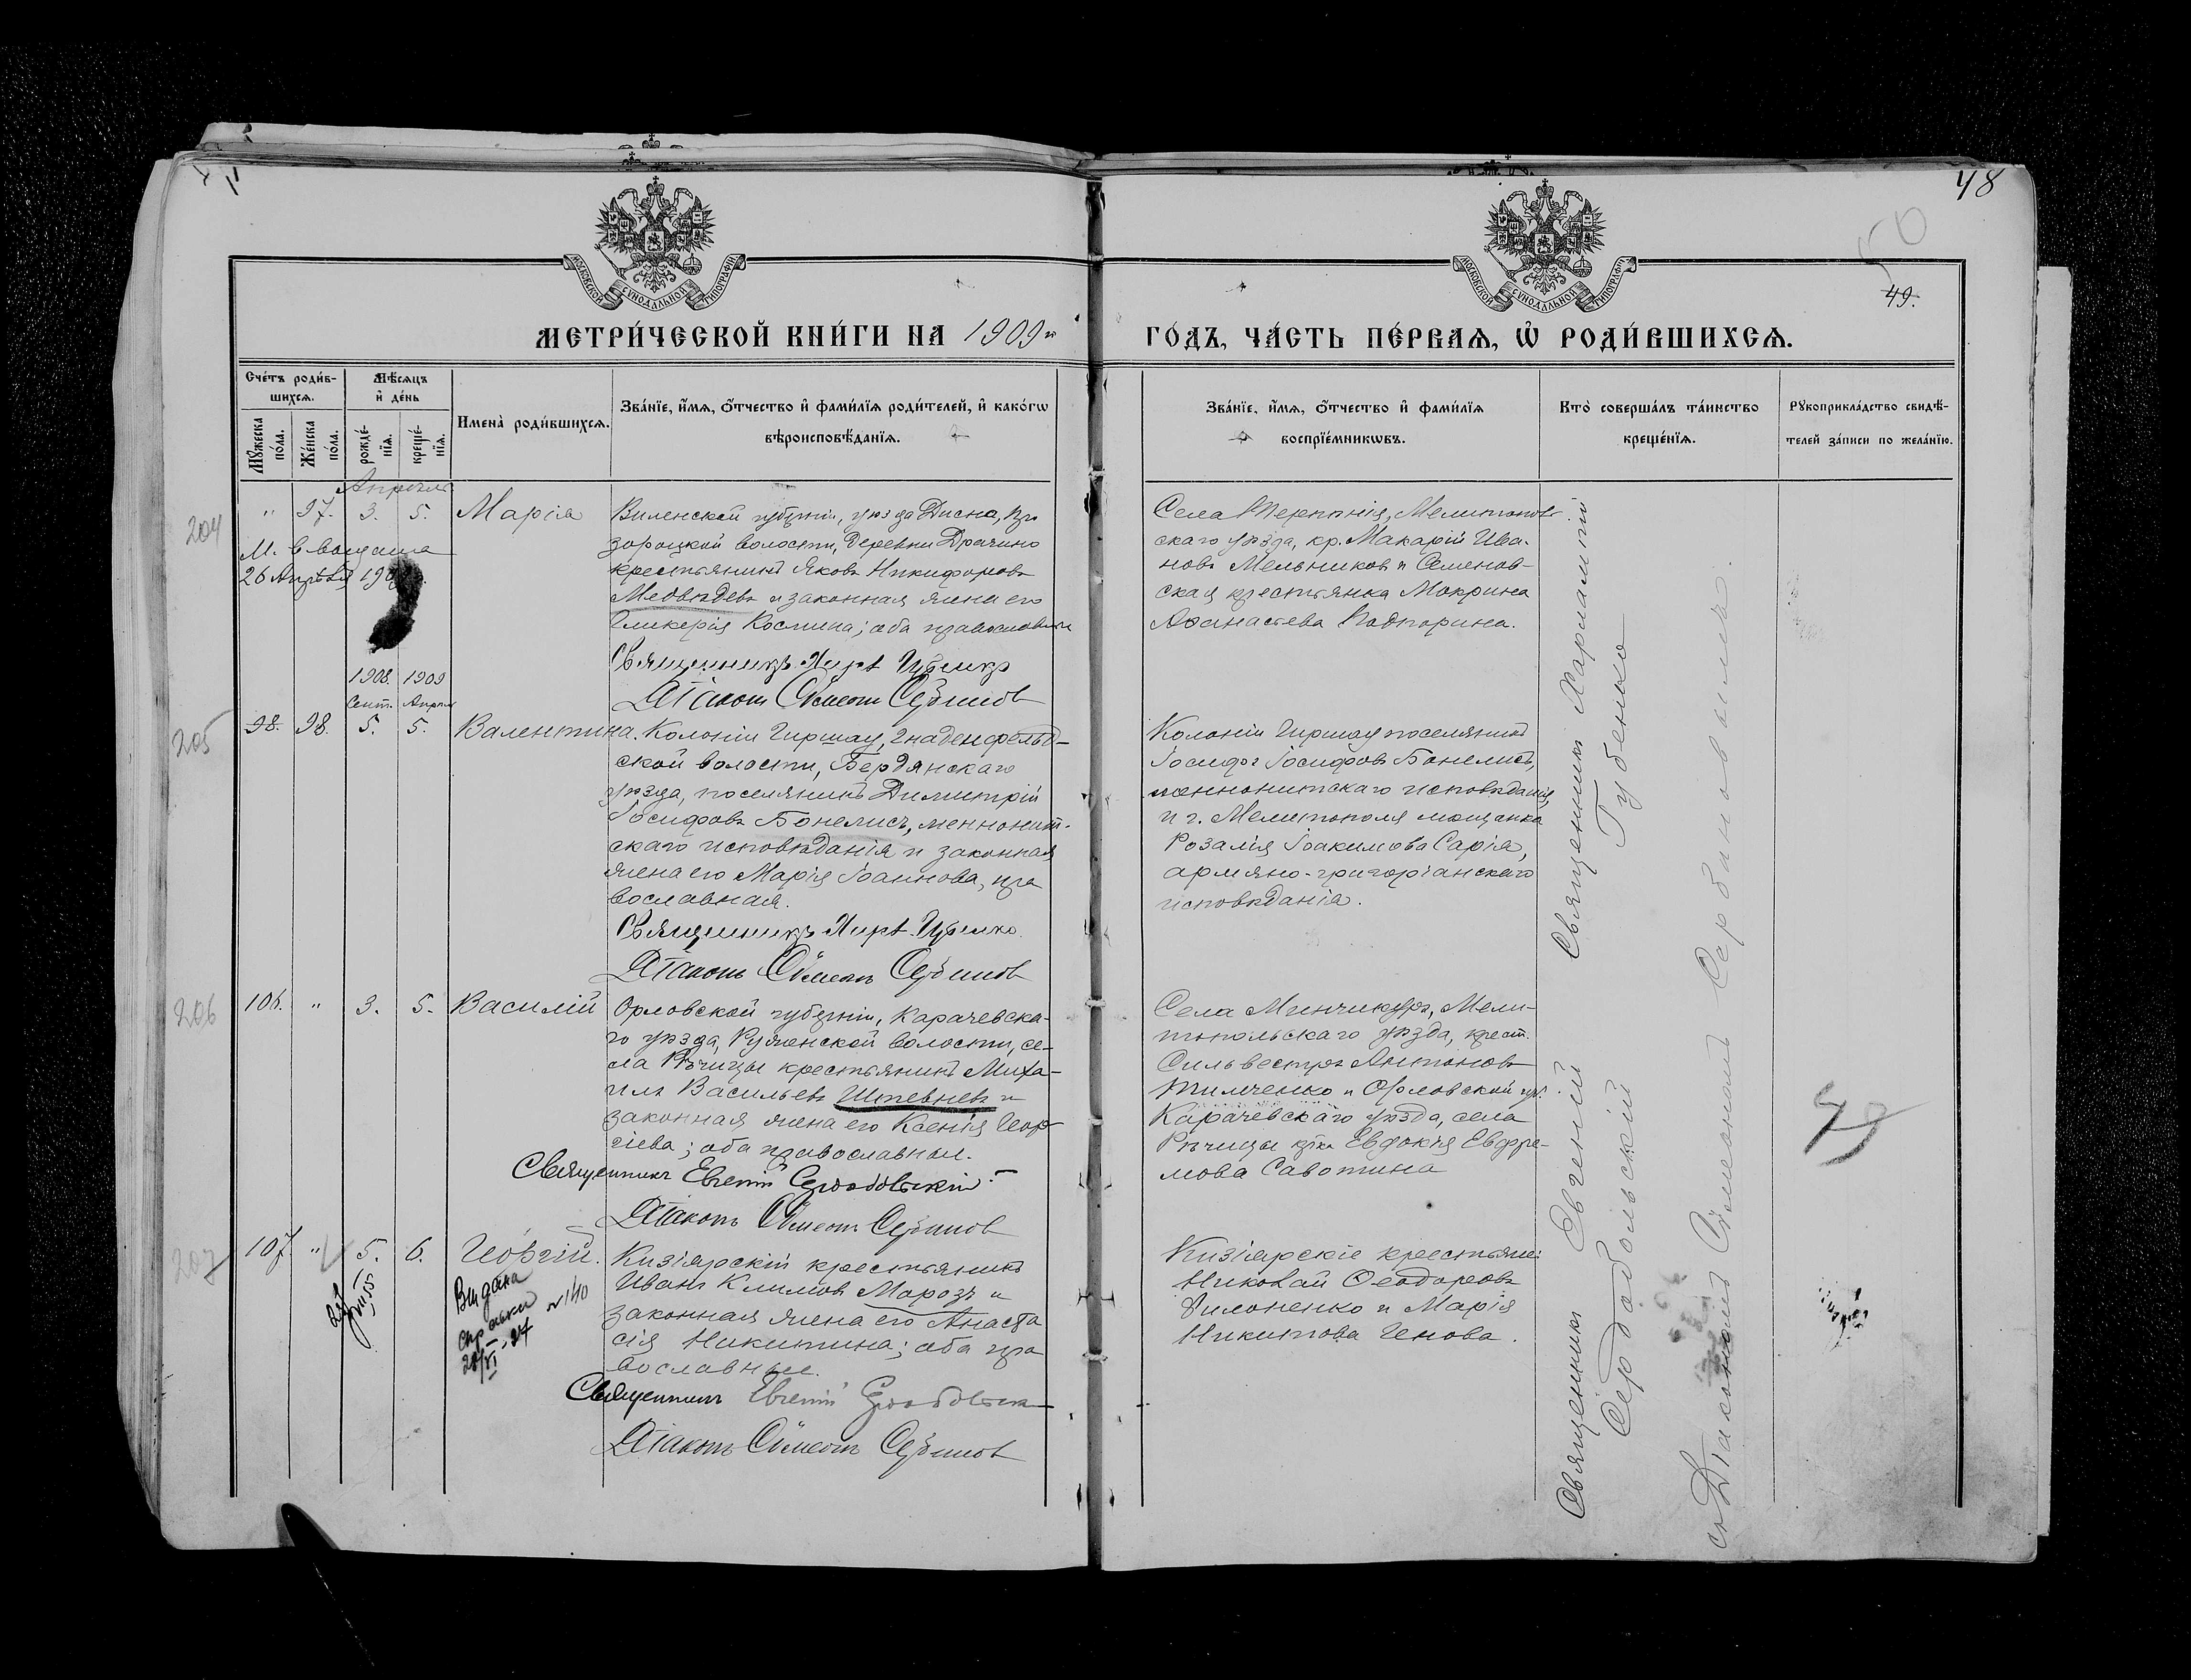 48
50
49.
МОСКОВСКОЙ СУНОДАЛЬНОЙ ТИПОГРАФІИ
МОСКОВСКОЙ СУНОДАЛЬНОЙ ТИПОГРАФІИ
МЕТРИ́ЧЕСКОЙ КНИ́ГИ НА 1909й
ГО́ДЪ, ЧА́СТЬ ПЕ́РВАѦ, Ѽ РОДИ́ВШИХСѦ.
Сче́тъ роди́в-
шихсѧ.
Мꙋ́жеска по́ла.
Же́нска по́ла.
Мѣ́сѧцъ
и҆ де́нь
рожде́-
нїѧ.
креще́-
нїѧ.
Имена̀ роди́вшихсѧ.
Зва́нїе, и҆́мѧ, ѻ҆́тчество и҆ фами́лїѧ роди́телей, и҆ како́гѡ
вѣроисповѣ́данїѧ.
Зва́нїе, и҆́мѧ, ѻ҆́тчество и҆ фами́лїѧ
воспрїе́мникѡвъ.
Кто̀ соверша́лъ та́инство
креще́нїѧ.
Рꙋкоприкла́дство свидѣ́-
телей за́писи по жела́нїю.
Апрѣль
204 " 97. 3. 5. Марія
Виленской губерніи, уѣзда Дисна, 
зороцкой волости, деревни Драчино
крестьянинъ Яковъ Никифоровъ
Медвѣдевъ и законная жена его
Гликерія Космина; оба православные
Священникъ
Діаконъ Сѵмеонъ Сербиновъ
26 Апрѣля
Села Терпѣнія, Мелитополь
скаго уѣзда, кр. Макарій Ива-
новъ Мельниковъ и Семенов-
ская крестьянка Мокрина
Аѳанасьева Подпорина.
1908. 1909
Сент. Апрѣл
205 98. 98. 5. 5. Валентина.
Колоніи Гиршау, Гнаденфельд-
ской волости, Бердянскаго
уѣзда, поселянинъ Димитрій
Іосифовъ Бонелисъ, меннонит-
скаго исповѣданія и законная
жена его Марія Іоаннова, пра
вославная.
Священникъ
Діаконъ Сѵмеонъ Сербиновъ
Колоніи Гиршау поселянинъ
Іосифъ Іосифовъ Бонелисъ,
меннонитскаго исповѣданія,
и г. Мелитополя мѣщанка
Розалія Іоакимова Сарія,
армяно-григоріанскаго
исповѣданія.
206 106. " 3. 5. Василій
Орловской губерніи, Карачевска-
го уѣзда, волости, се-
ла Рѣчицы крестьянинъ Миха-
илъ Васильевъ Штевневъ и
законная жена его Ксенія Геор
гіева; оба православные.
Священникъ Евгеній Сердобольскій
Діаконъ Сѵмеонъ Сербиновъ
Села Минчикура, Мели-
топольскаго уѣзда, крест.
Сильвестръ Антоновъ
Тимченко и Орловской губ.
Карачевскаго уѣзда, села
Рѣчицы кр-ка Евдокія Евфре-
мова Савотина
49
207 107. " 5. 6. Георгій.
Кизіярскій крестьянинъ
Иванъ Климовъ Морозъ и
законная жена его Анаста
сія Никитина; оба пра
вославные.
Священникъ Евгеній Сердобольскій
Діаконъ Сѵмеонъ Сербиновъ
Видана
справка № 140
Кизіярскіе крестьяне:
Николай Ѳеодоровъ
Филоненко и Марія
Никитова Ченова.
Священники Харлампій
Губенко
Священники Евгеній
Сердобольскій
съ Діакономъ Сѵмеономъ Сербиновымъ.